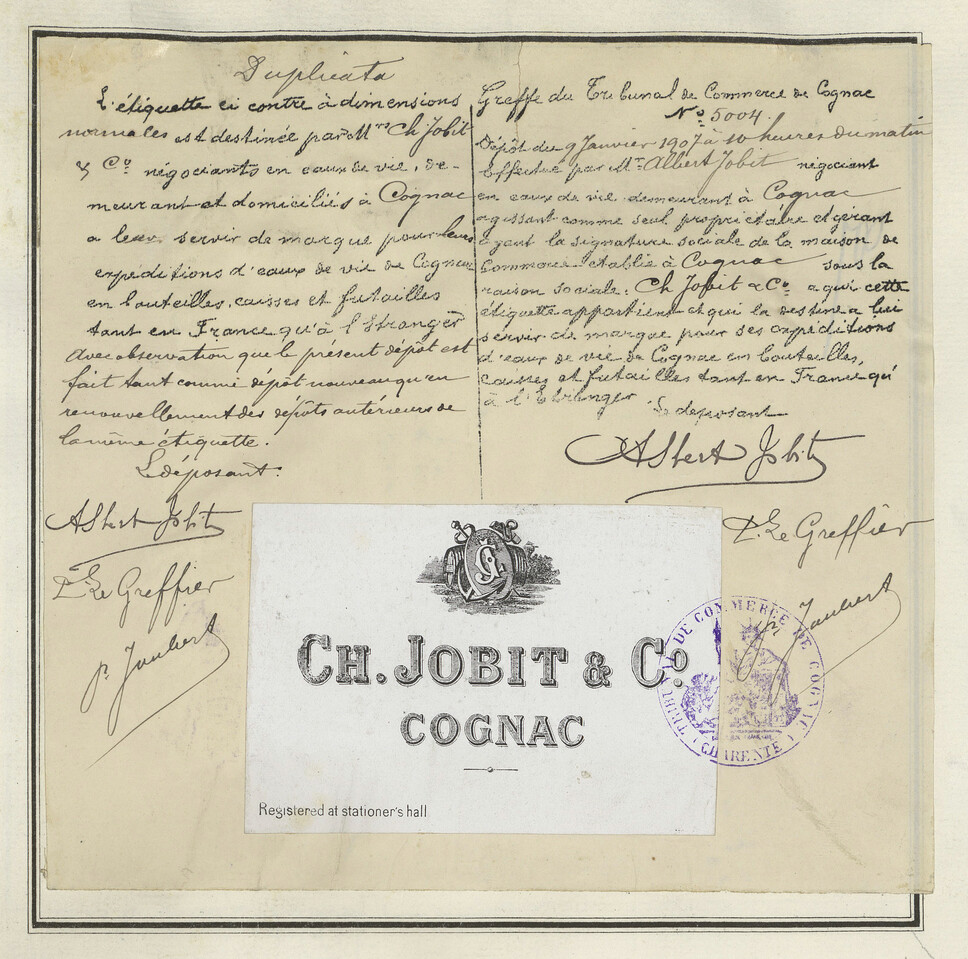 Duplicata
L'étiquette ci contre à dimensions
normales est destinée par Mrs Ch Jobit
& Co négociants en eaux de vie, de-
meurant et domiciliés à Cognac
a leur servir de marque pour leurs
expéditions d'eaux de vie de Cognac
en bouteilles, caisses et futailles
tant en France qu'à l'Etranger
avec observation que le présent dépôt est
fait tant comme dépôt nouveau qu'en
renouvellement des dépôts antérieurs de
la même étiquette.
Le déposant.
Albert Jobit
P. Le Greffier
p. Joubert
Greffe du Tribunal de Commerce de Cognac
No 5004.
Dépôt du 9 Janvier 1907 à 10 heures du matin
Effectué par Mr Albert Jobit négociant
en eaux de vie demeurant à Cognac
agissant comme seul propriétaire et gérant
ayant la signature sociale de la maison de
Commerce établie à Cognac sous la
raison sociale: Ch Jobit & Co a qui cette
étiquette appartient et qui la destine a lui
servir de marque pour ses expéditions
d'eaux de vie de Cognac en bouteilles,
caisses et futailles tant en France qu'
à l'Etranger
Le deposant
Albert Jobit
P. Le Greffier
p. Joubert
CH. JOBIT & Co.
COGNAC
Registered at stationer's hall
TRIBUNAL DE COMMERCE DE COGNAC
(CHARENTE)